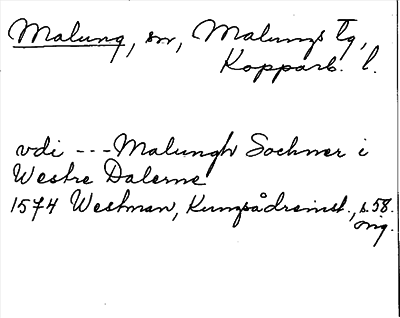 Malung, sn, Malungs tg,
Kopparb. l.
vdi --- Malungh Sochner i
Westre Dalerne
1574 Westman, Kungsådreinst., s. 58.
orig.